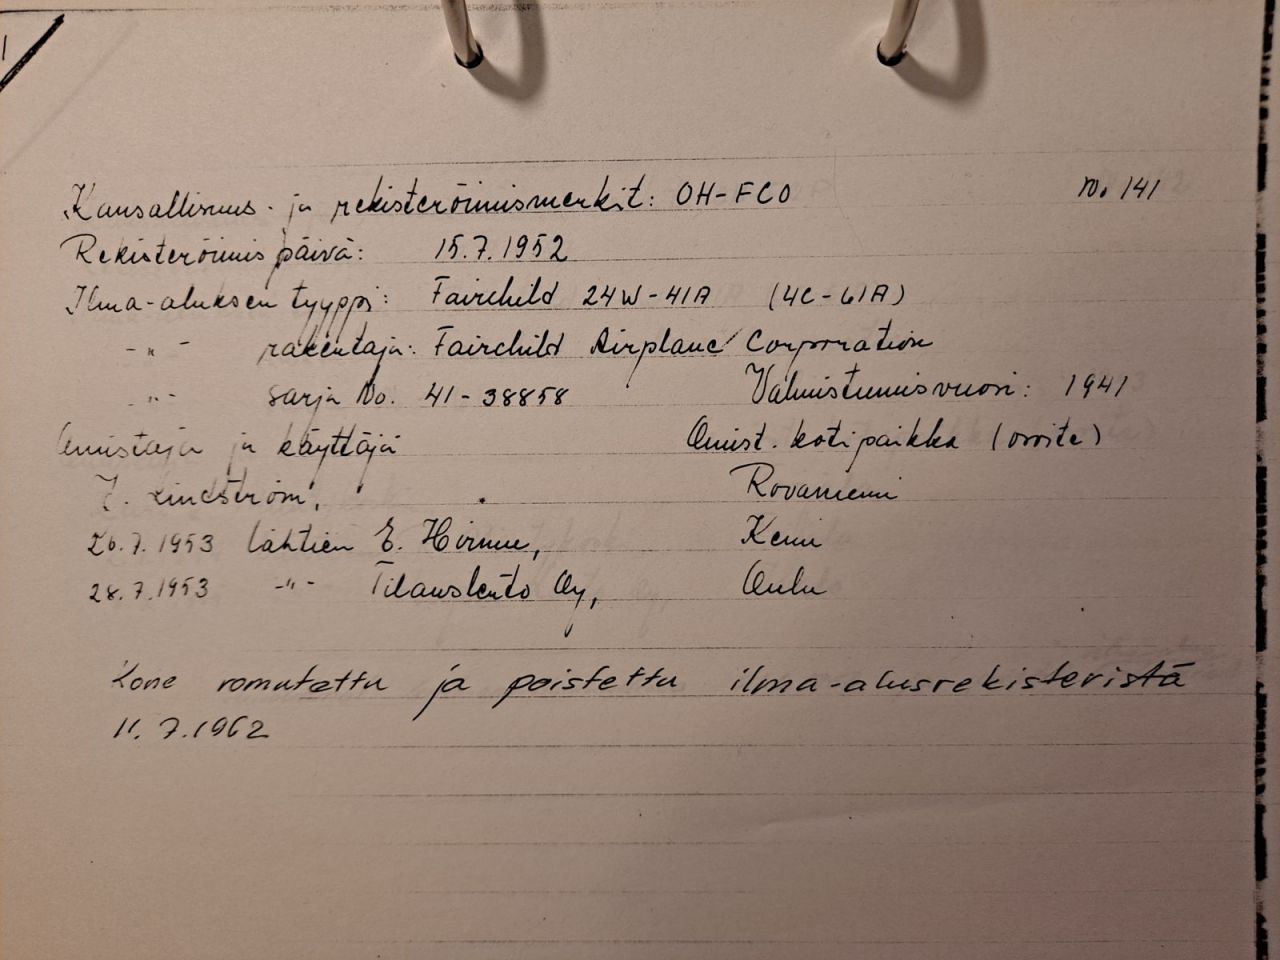 Kansallisuus- ja rekisteröimismerkit: OH-FCO No 141
Rekisteröimispäivä: 15.7.1952
Ilma-aluksen tyyppi: Fairchild 24W-41A (UC-61A)
-"- rakentaja: Fairchild Airplane Corporation
-"- sarja No. 41-38858 Valmistumisvuosi: 1941
Omistaja ja käyttäjä Omist. kotipaikka (osoite)
Lindström, Rovaniemi
20.7.1953 lähtien E. Hirmu, Kemi
28.7.1953 -"- Tilauslento Oy, Oulu
Kone romutettu ja poistettu ilma-alusrekisteristä
11.7.1962